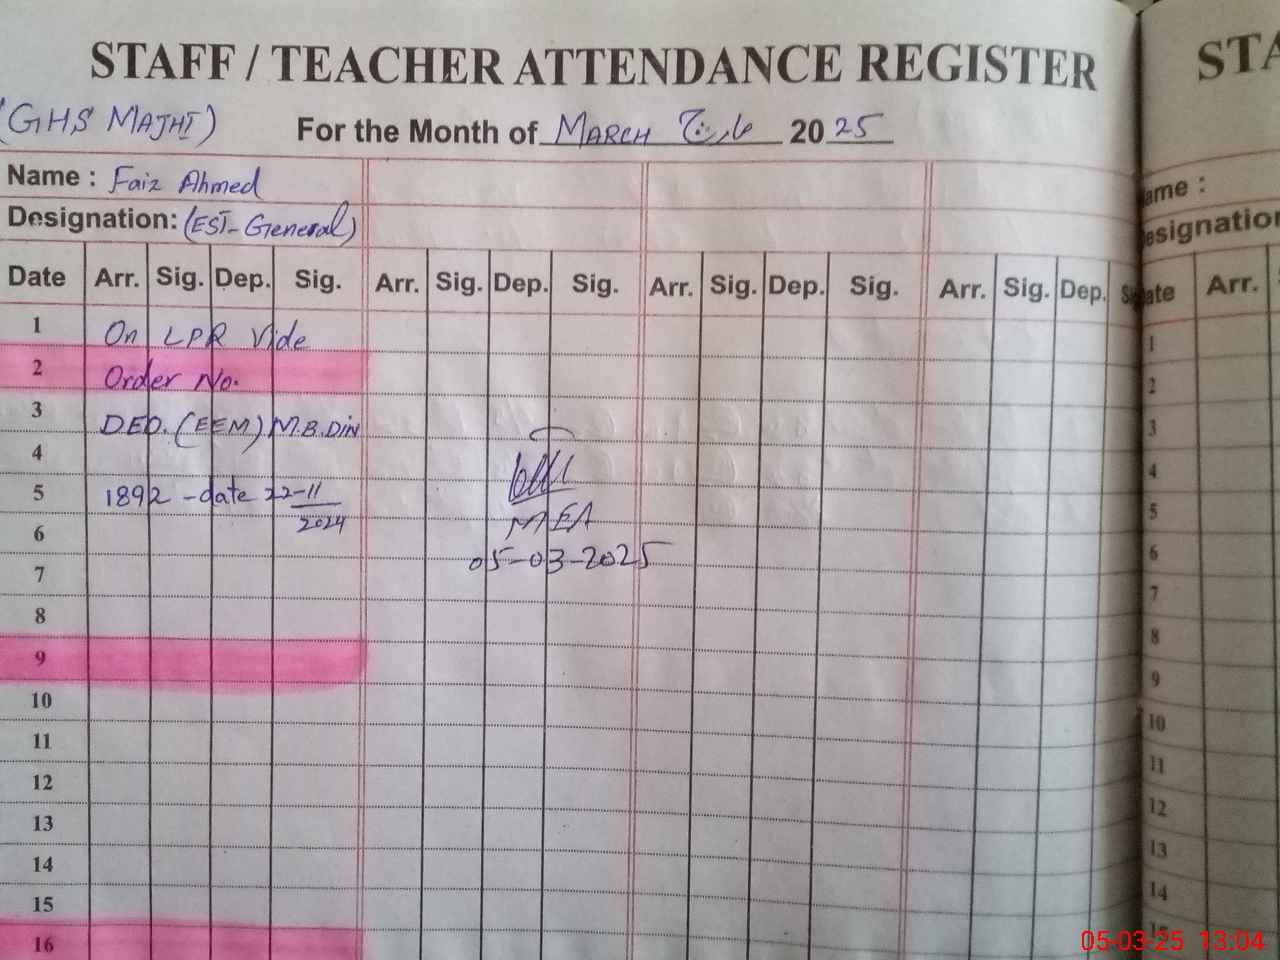 STAFF / TEACHER ATTENDANCE REGISTER
(GHS MAJHI) For the Month of MARCH مارچ 2025
Name : Faiz Ahmed
Designation: (EST-General)
Date Arr. Sig. Dep. Sig. Arr. Sig. Dep. Sig. Arr. Sig. Dep. Sig. Arr. Sig. Dep.
1 On LPR Vide
2 Order No.
3 DEO. (EEM) M.B.Din
4
5 1892 - date 22-11
2024
6 MEA
7 05-03-2025
8
9
10
11
12
13
14
15
16
STA
ame :
esignation
ate Arr.
1
2
3
4
5
6
7
8
9
10
11
12
13
14
15
05-03-25 13:04